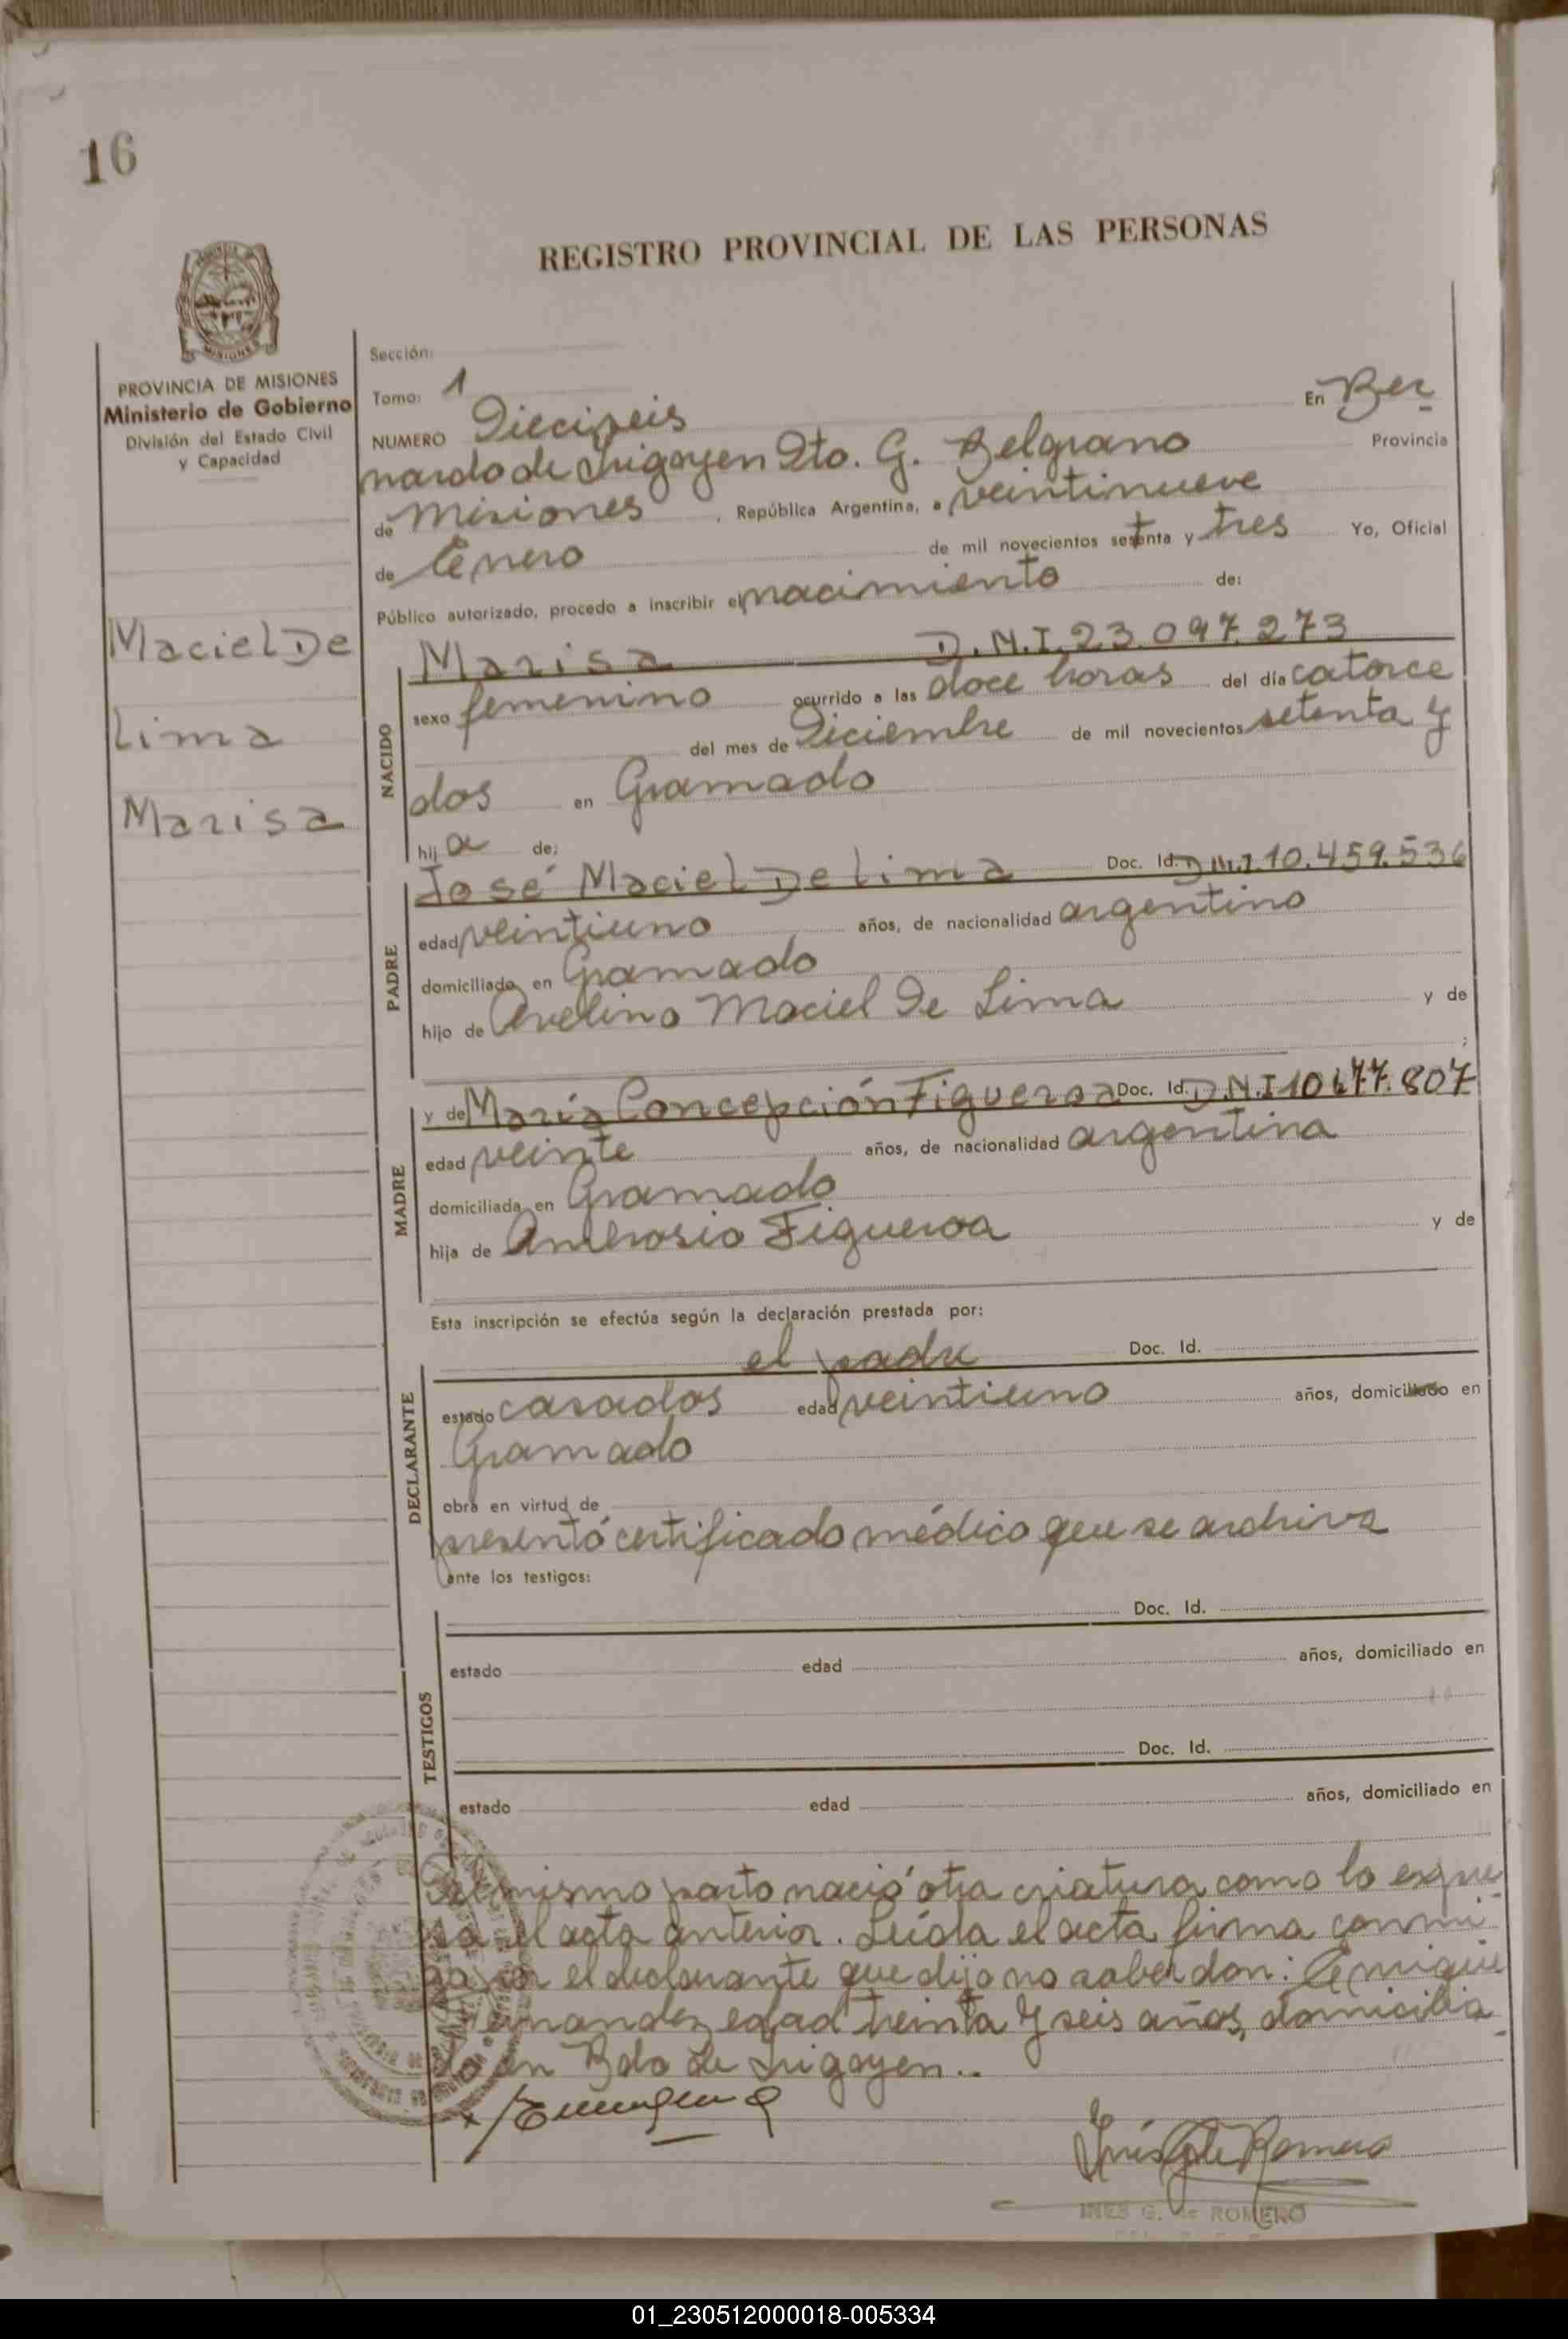 16
REGISTRO PROVINCIAL DE LAS PERSONAS
MISIONES
PROVINCIA DE MISIONES
Ministerio de Gobierno
División del Estado Civil
y Capacidad
Maciel De
Lima
Marisa
Sección:
Tomo: 1
NUMERO Dieciseis En Ber
nardo de Irigoyen Dto. G. Belgrano Provincia
de Misiones, República Argentina, a veintinueve
de Enero de mil novecientos setenta y tres Yo, Oficial
Público autorizado, procedo a inscribir el nacimiento de:
NACIDO
Marisa D.N.I. 23.097.273
sexo femenino ocurrido a las doce horas del día catorce
del mes de Diciembre de mil novecientos setenta y
dos en Gramado
hij a de:
PADRE
José Maciel De Lima Doc. Id. D.N.I 10.459.536
edad veintiuno años, de nacionalidad argentino
domiciliado en Gramado
hijo de Avelino Maciel De Lima y de
;
MADRE
y de María Concepción Figueroa Doc. Id. D.N.I 10.677.807
edad veinte años, de nacionalidad argentina
domiciliada en Gramado
hija de Ambrosio Figueroa y de
Esta inscripción se efectúa según la declaración prestada por:
DECLARANTE
el padre Doc. Id.
estado casados edad veintiuno años, domiciliado en
Gramado
obra en virtud de
presentó certificado médico que se archiva
ante los testigos:
TESTIGOS
Doc. Id.
estado edad años, domiciliado en
Doc. Id.
estado edad años, domiciliado en
mismo parto nació otra criatura como lo expre
sa el acta anterior. Leída el acta firma conmi
go por el declarante que dijo no saber don: Enrique
Fernandez edad treinta y seis años, domicilia
en Bdo de Irigoyen..
Inés G de Romero
INES G. de ROMERO
01_230512000018-005334